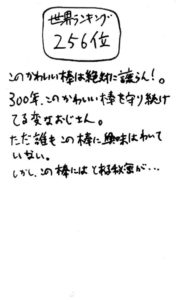 世界ランキング
256位
このかわいい棒は絶対に譲らん!。
300年、このかわいい棒を守り続け
てる変なおじさん。
ただ誰もこの棒に興味はわいて
いない。
しかし、この棒にはとある秘密が…